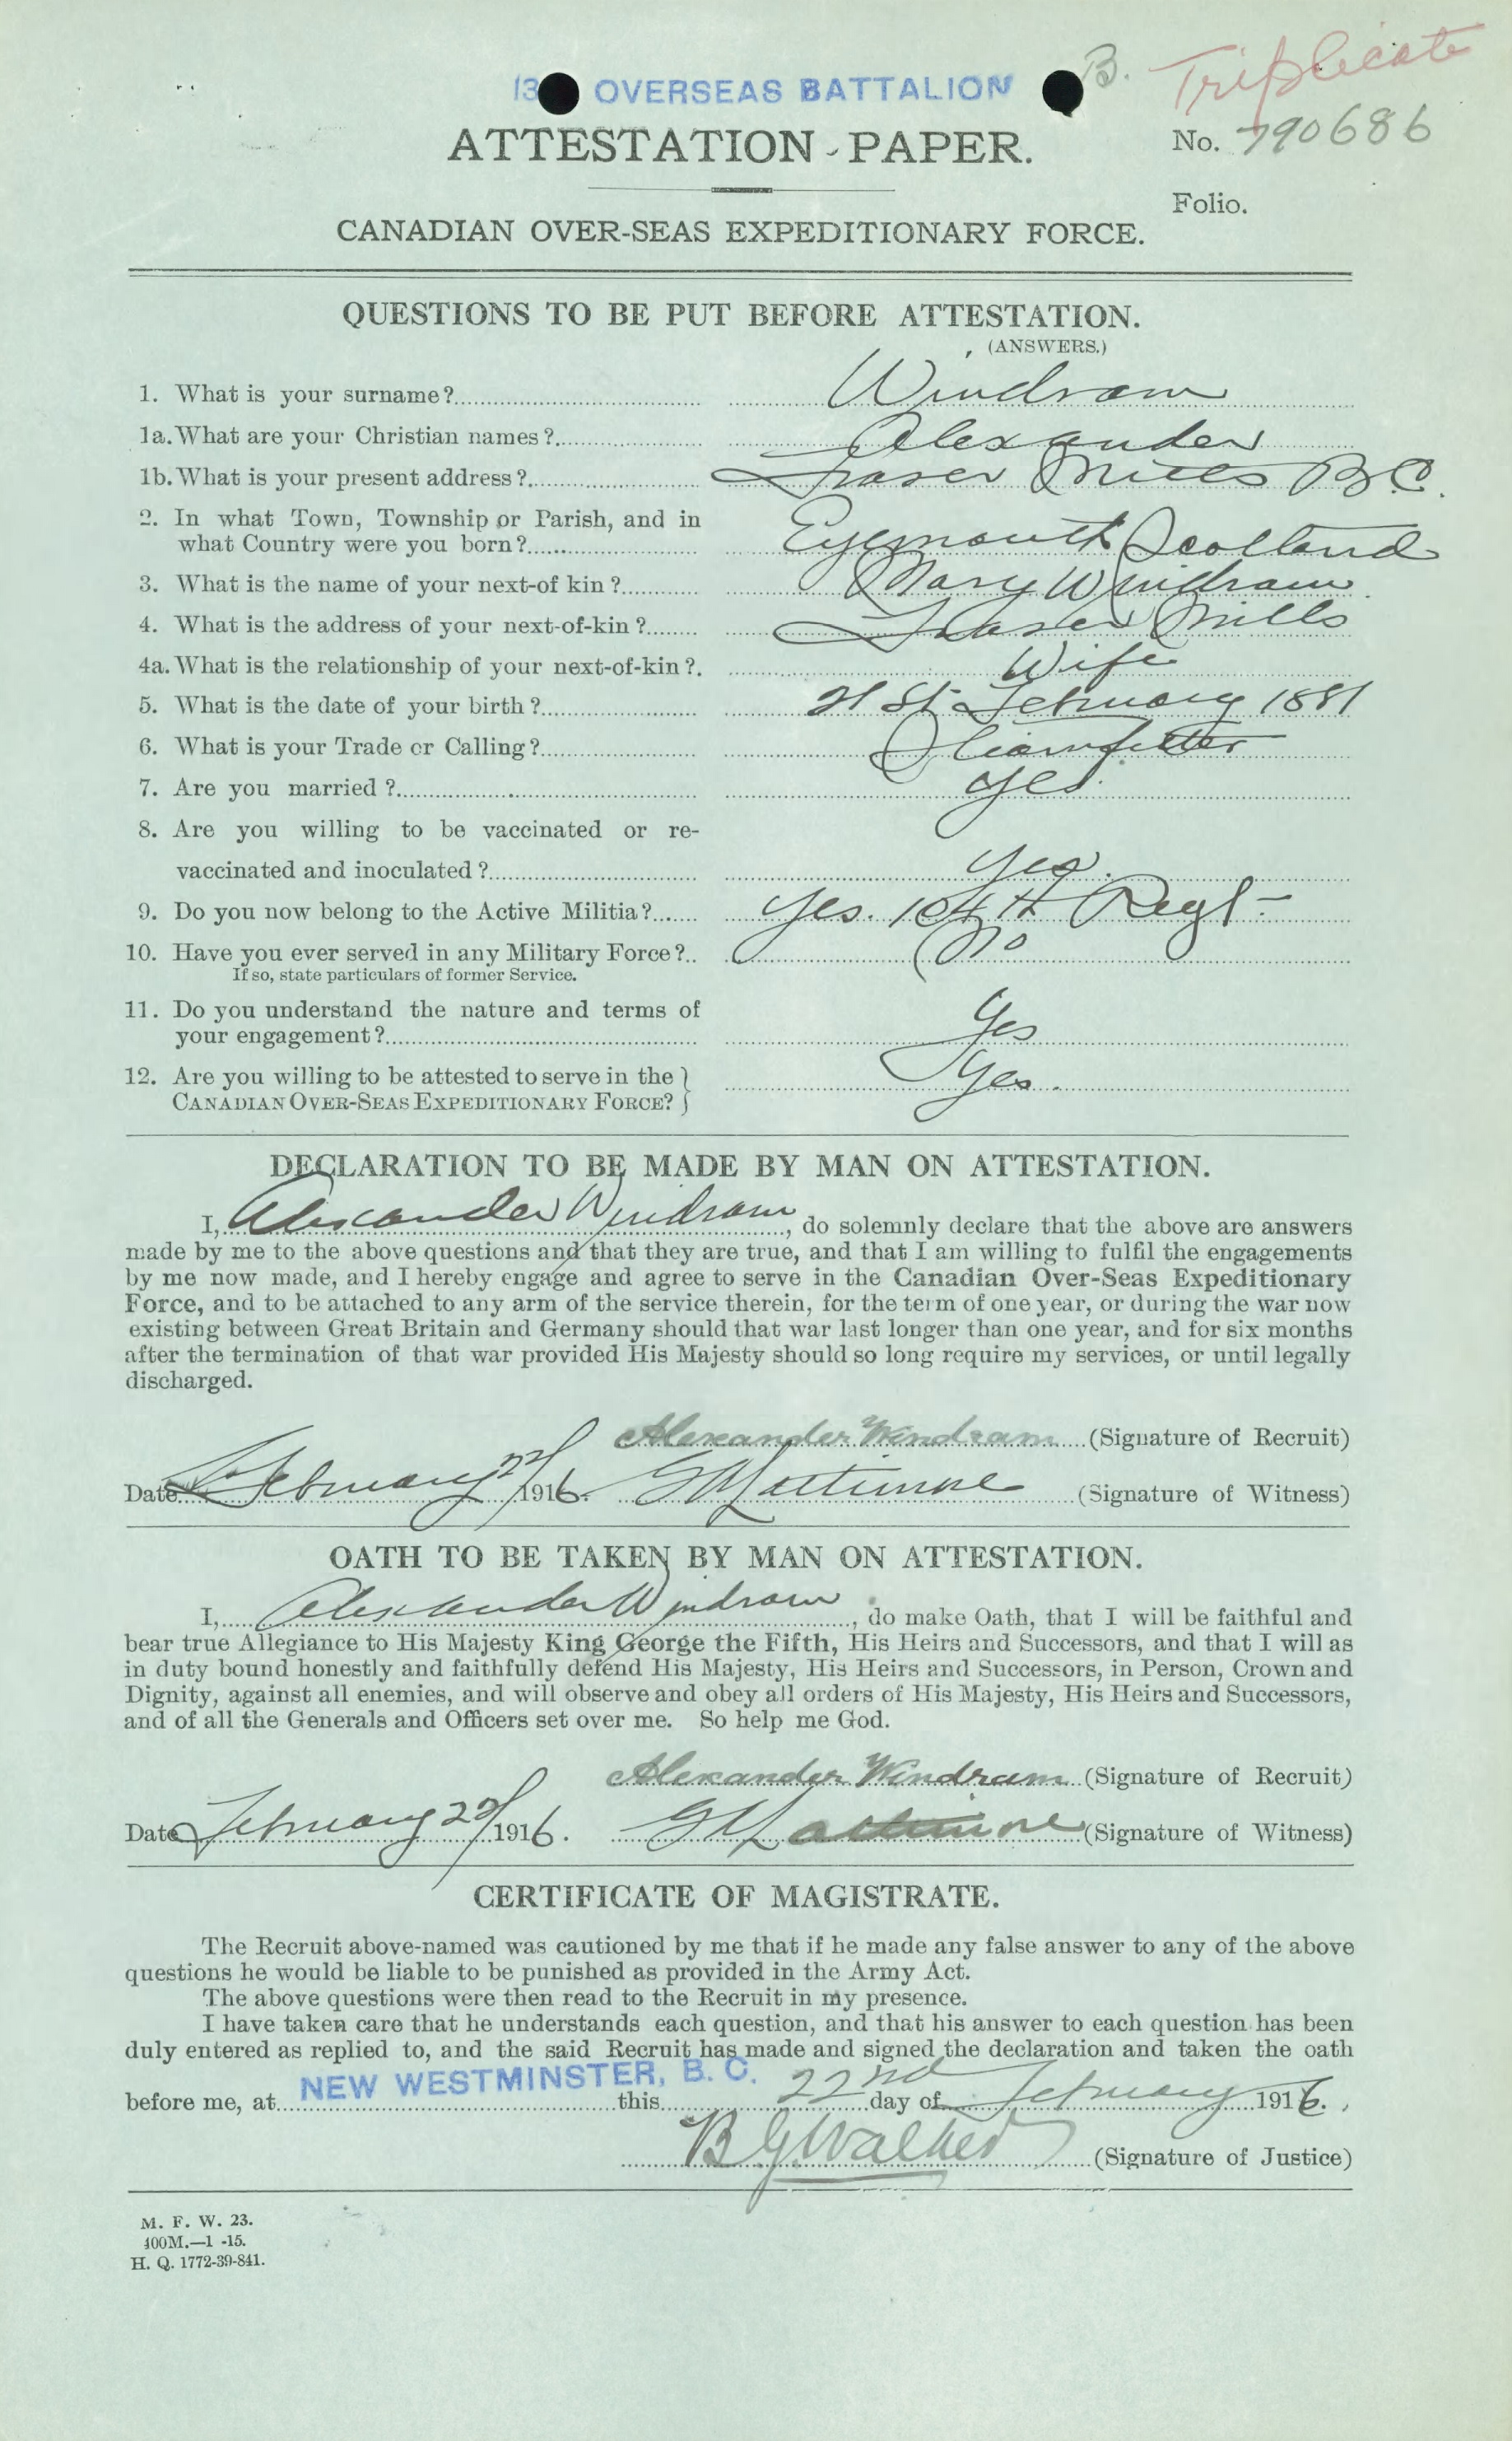 13 OVERSEAS BATTALION
B. Triplicate
ATTESTATION PAPER.
No. 790686
Folio.
CANADIAN OVER-SEAS EXPEDITIONARY FORCE.
QUESTIONS TO BE PUT BEFORE ATTESTATION.
(ANSWERS.)
1. What is your surname? Windram
1a. What are your Christian names? Alexander
1b. What is your present address? Fraser Mills B.C.
2. In what Town, Township or Parish, and in
what Country were you born? Eyemouth Scotland
3. What is the name of your next-of kin? Mary Windram
4. What is the address of your next-of-kin? Fraser Mills
4a. What is the relationship of your next-of-kin? Wife
5. What is the date of your birth? 21st February 1881
6. What is your Trade or Calling? Steamfitter
7. Are you married? Yes.
8. Are you willing to be vaccinated or re-
vaccinated and inoculated? Yes.
9. Do you now belong to the Active Militia? Yes. 104th Regt-
10. Have you ever served in any Military Force? No
If so, state particulars of former Service.
11. Do you understand the nature and terms of
your engagement? Yes
12. Are you willing to be attested to serve in the
CANADIAN OVER-SEAS EXPEDITIONARY FORCE? Yes.
DECLARATION TO BE MADE BY MAN ON ATTESTATION.
I, Alexander Windram, do solemnly declare that the above are answers
made by me to the above questions and that they are true, and that I am willing to fulfil the engagements
by me now made, and I hereby engage and agree to serve in the Canadian Over-Seas Expeditionary
Force, and to be attached to any arm of the service therein, for the term of one year, or during the war now
existing between Great Britain and Germany should that war last longer than one year, and for six months
after the termination of that war provided His Majesty should so long require my services, or until legally
discharged.
Alexander Windram (Signature of Recruit)
Date February 22/ 1916. (Signature of Witness)
OATH TO BE TAKEN BY MAN ON ATTESTATION.
I, Alexander Windram, do make Oath, that I will be faithful and
bear true Allegiance to His Majesty King George the Fifth, His Heirs and Successors, and that I will as
in duty bound honestly and faithfully defend His Majesty, His Heirs and Successors, in Person, Crown and
Dignity, against all enemies, and will observe and obey all orders of His Majesty, His Heirs and Successors,
and of all the Generals and Officers set over me. So help me God.
Alexander Windram (Signature of Recruit)
Date February 22/ 1916. (Signature of Witness)
CERTIFICATE OF MAGISTRATE.
The Recruit above-named was cautioned by me that if he made any false answer to any of the above
questions he would be liable to be punished as provided in the Army Act.
The above questions were then read to the Recruit in my presence.
I have taken care that he understands each question, and that his answer to each question has been
duly entered as replied to, and the said Recruit has made and signed the declaration and taken the oath
before me, at NEW WESTMINSTER, B. C. this 22nd day of February 1916.
B G Walker (Signature of Justice)
M. F. W. 23.
400M.—1 -15.
H. Q. 1772-39-841.